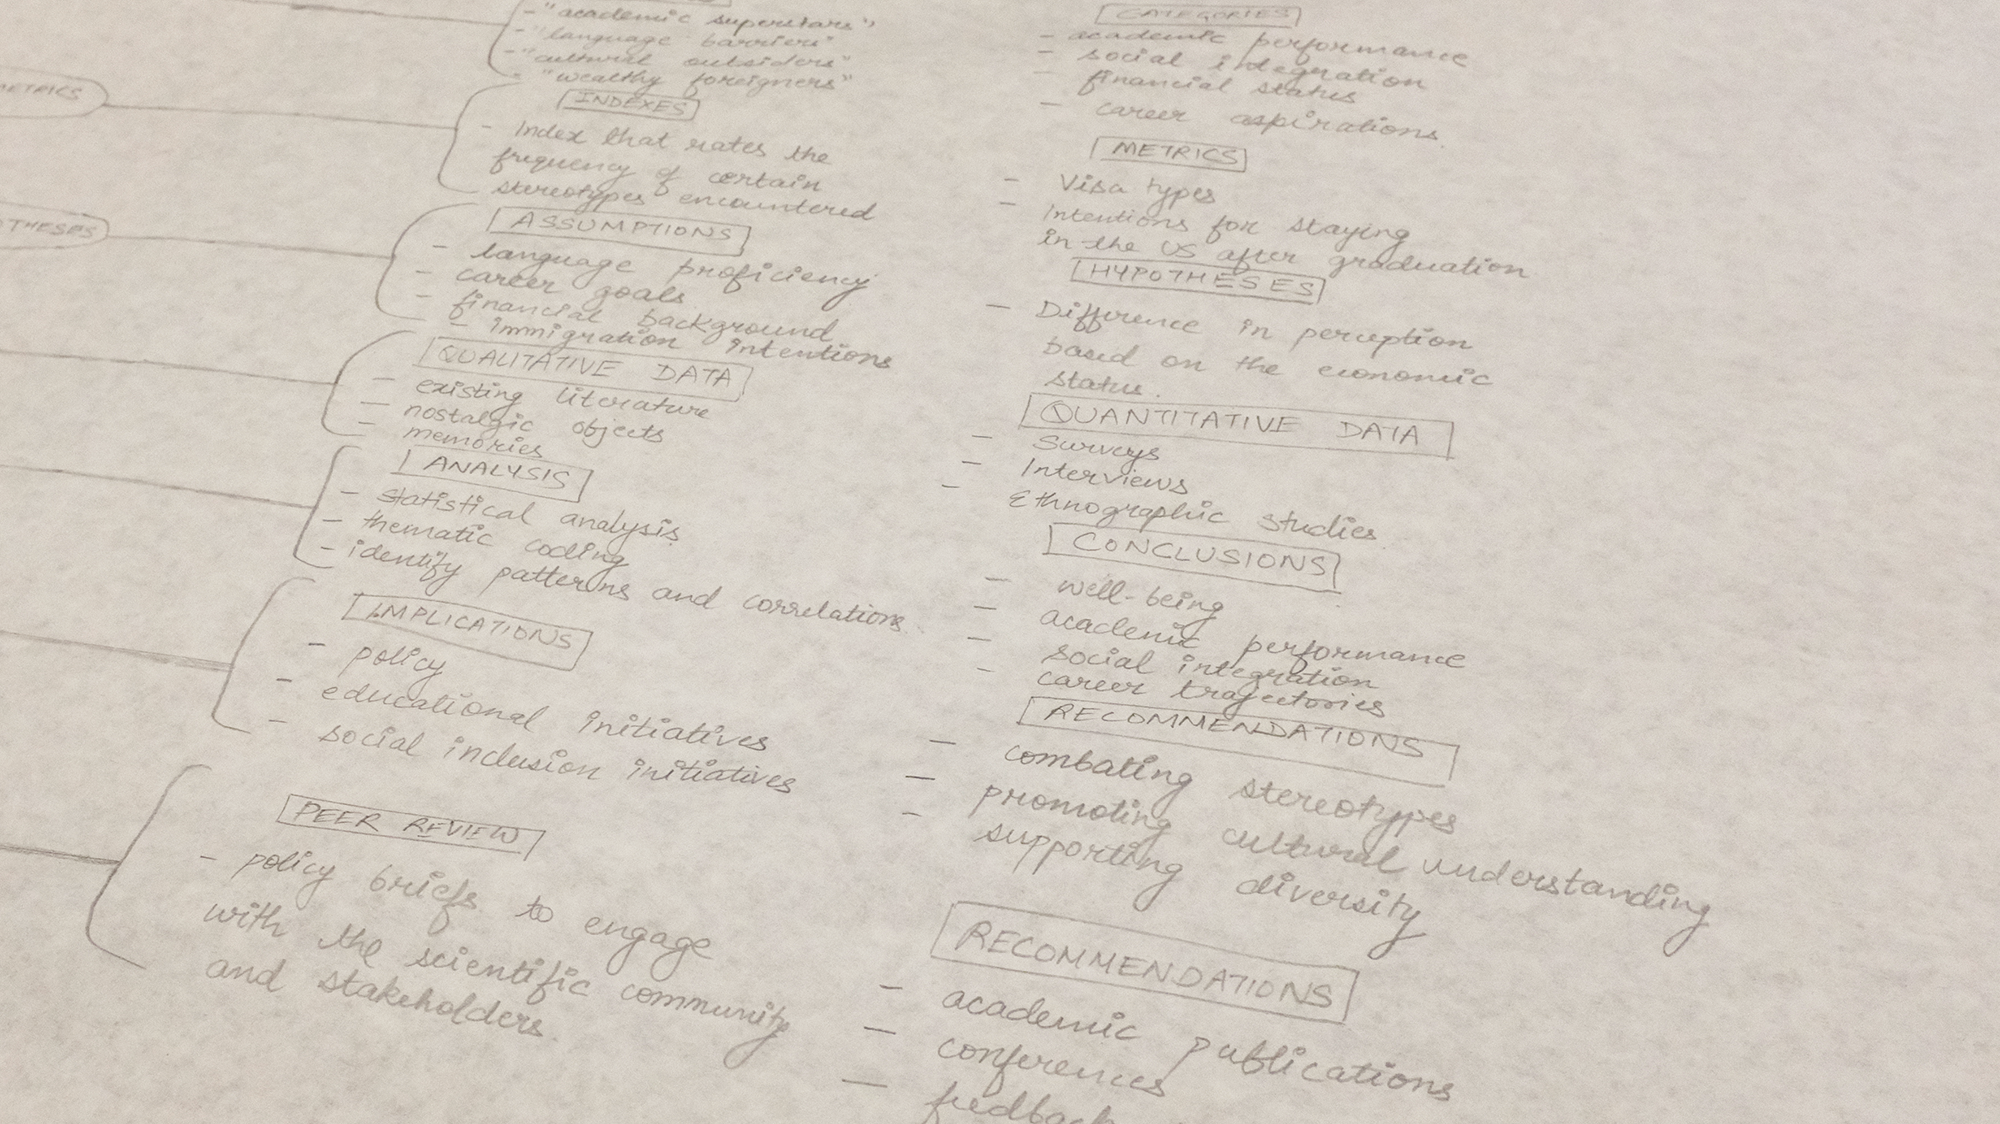 - "academic superstars"
- "language barriers"
- "cultural outsiders"
- "wealthy foreigners"
METRICS
INDEXES
- Index that rates the
frequency of certain
stereotypes encountered
THESES
ASSUMPTIONS
- language proficiency
- career goals
- financial background
- immigration intentions
QUALITATIVE DATA
- existing literature
- nostalgic objects
- memories
ANALYSIS
- statistical analysis
- thematic coding
- identify patterns and correlations.
IMPLICATIONS
- policy
- educational initiatives
- social inclusion initiatives
PEER REVIEW
- policy briefs to engage
with the scientific community
and stakeholders.
CATEGORIES
- academic performance
- social integration
- financial status
- career aspirations.
METRICS
- Visa types
- Intentions for staying
in the US after graduation
HYPOTHESES
- Difference in perception
based on the economic
status.
QUANTITATIVE DATA
- Surveys
- Interviews
- Ethnographic studies.
CONCLUSIONS
- well-being
- academic performance
- social integration
- career trajectories
RECOMMENDATIONS
- combating stereotypes
- promoting cultural understanding
- supporting diversity
RECOMMENDATIONS
- academic publications
- conferences
- feedback